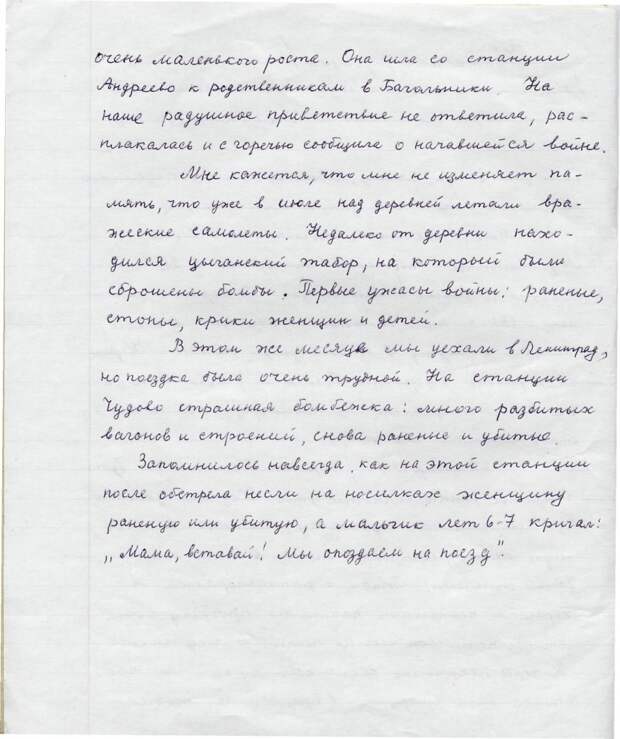 очень маленького роста. Она шла со станции
Андреево к родственникам в Багольники. На
наше радушное приветствие не ответила, рас-
плакалась и с горечью сообщила о начавшейся войне.
Мне кажется, что мне не изменяет па-
мять, что уже в июле над деревней летали вра-
жеские самолеты. Недалеко от деревни нахо-
дился цыганский табор, на который были
сброшены бомбы. Первые ужасы войны: раненые,
стоны, крики женщин и детей.
В этом же месяце мы уехали в Ленинград,
но поездка была очень трудной. На станции
Чудово страшная бомбежка: много разбитых
вагонов и строений, снова раненые и убитые.
Запомнилось навсегда, как на этой станции
после обстрела несли на носилках женщину
раненую или убитую, а мальчик лет 6-7 кричал:
„Мама, вставай! Мы опоздаем на поезд".